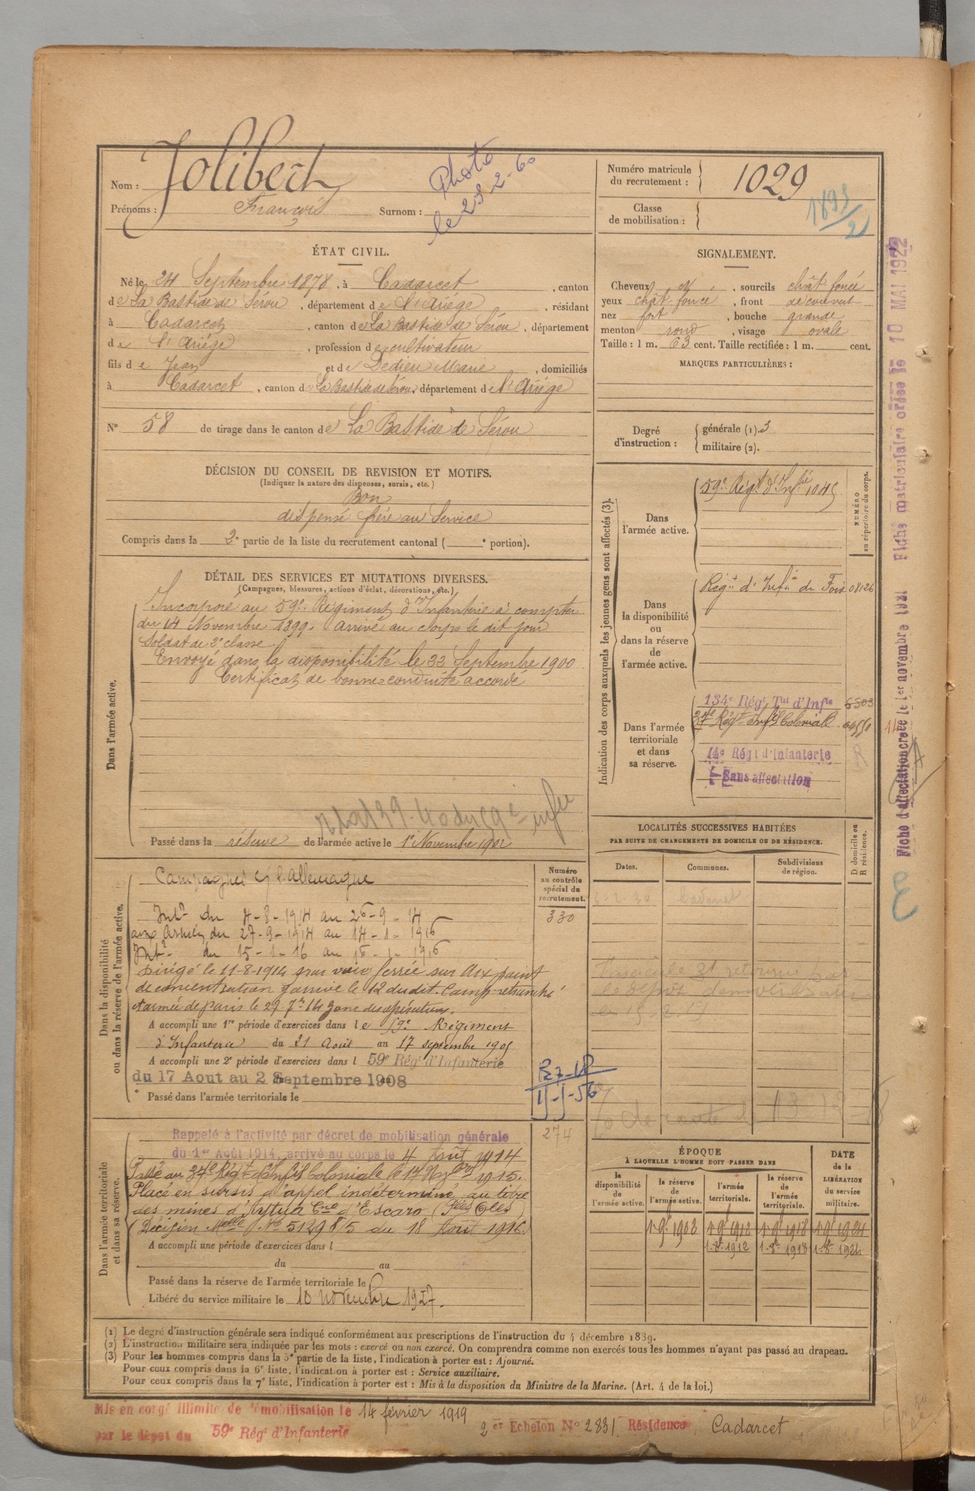 Nom : Jolibert
Prénoms : François Surnom :
Photo
le 23-2-60
ÉTAT CIVIL.
Né le 24 Septembre 1878, à Cadarcet, canton
de La Bastide de Sérou, département de l'Ariège, résidant
à Cadarcet, canton de La Bastide de Sérou, département
de l'Ariège, profession de cultivateur
fils de Jean et de Dedieu Marie, domiciliés
à Cadarcet, canton de La Bastide de Sérou, département de l'Ariège
N° 58 de tirage dans le canton de La Bastide de Sérou
DÉCISION DU CONSEIL DE REVISION ET MOTIFS.
(Indiquer la nature des dispenses, sursis, etc.)
Bon
dispensé frère au Service
Compris dans la 2e partie de la liste du recrutement cantonal ( e portion).
DÉTAIL DES SERVICES ET MUTATIONS DIVERSES.
(Campagnes, blessures, actions d'éclat, décorations, etc.)
Dans l'armée active.
Incorporé au 59e Régiment d'Infanterie à compter
du 14 Novembre 1899. Arrivé au Corps le dit jour
Soldat de 2e classe
Envoyé dans la disponibilité le 22 Septembre 1900
Certificat de bonne conduite accordé
Passé dans la réserve de l'armée active le 1er Novembre 1902
Dans la disponibilité
ou dans la réserve de l'armée active.
Campagnes c/ l'Allemagne
Intr du 4-8-1914 au 26-9-14
aux Armées du 27-9-1914 au 14-1-1916
Intr du 15-1-16 au
Dirigé le 11-8-1914 sous voie ferrée sur Aix point
de concentration y arrivé le 12 dudit. Camp retranché
et armée de Paris le 27 7bre 14 zone des opérations.
A accompli une 1re période d'exercices dans le 59e Régiment
d'Infanterie du 21 Août au 17 septembre 1905
A accompli une 2e période d'exercices dans l 59e Régt d'Infanterie
du 17 Aout au 2 Septembre 1908
Passé dans l'armée territoriale le
Numéro
au contrôle
spécial du
recrutement.
330
274
Dans l'armée territoriale
et dans sa réserve.
Rappelé à l'activité par décret de mobilisation générale
du 1er Août 1914, arrivé au corps le 4 Août 1914
Passé au 34e Régt d'Infie Coloniale le 14 Xbre 1915.
Placé en sursis d'appel indéterminé, au titre
des mines d'Aytua Cne d'Escaro (Pées Oles)
Décision Melle N° 51498 5 du 18 Août 1916
A accompli une période d'exercices dans l
du au
Passé dans la réserve de l'armée territoriale le
Libéré du service militaire le 10 novembre 1927.
Numéro matricule
du recrutement : 1029
Classe
de mobilisation :
1893/2
SIGNALEMENT.
Cheveux et, sourcils chât foncé
yeux chât foncé, front découvert
nez fort, bouche grande
menton rond, visage ovale
Taille : 1 m. 63 cent. Taille rectifiée : 1 m. cent.
MARQUES PARTICULIÈRES :
Degré
d'instruction :
générale (1). 3
militaire (2).
Indication des corps auxquels les jeunes gens sont affectés (3).
NUMÉRO
au répertoire du corps.
Dans
l'armée active.
59e Régt d'Infie 1045
Dans
la disponibilité
ou
dans la réserve
de
l'armée active.
Régt d'Infie de Foix 08126
Dans l'armée
territoriale
et dans
sa réserve.
134e Régt Tal d'Infie 6503
34e Régt Infie Coloniale
14e Régt d'Infanterie
Sans affectation
LOCALITÉS SUCCESSIVES HABITÉES
PAR SUITE DE CHANGEMENTS DE DOMICILE OU DE RÉSIDENCE.
D domicile ou
R résidence.
Dates. Communes. Subdivisions
de région.
ÉPOQUE
À LAQUELLE L'HOMME DOIT PASSER DANS
DATE
de la
LIBÉRATION
du service
militaire.
la
disponibilité
de
l'armée active.
la
réserve
de
l'armée active.
l'armée
territoriale.
la
réserve
de
l'armée
territoriale.
Fiche matriculaire créée le 10 MAI 1922
Fiche d'affectation créée le 1er novembre 1921
(1) Le degré d'instruction générale sera indiqué conformément aux prescriptions de l'instruction du 4 décembre 1889.
(2) L'instruction militaire sera indiquée par les mots : exercé ou non exercé. On comprendra comme non exercés tous les hommes n'ayant pas passé au drapeau.
(3) Pour les hommes compris dans la 5e partie de la liste, l'indication à porter est : Ajourné.
Pour ceux compris dans la 6e liste, l'indication à porter est : Service auxiliaire.
Pour ceux compris dans la 7e liste, l'indication à porter est : Mis à la disposition du Ministre de la Marine. (Art. 4 de la loi.)
Mis en congé illimité de démobilisation le 14 février 1919
par le dépôt du 59e Régt d'Infanterie
2er Echelon N° 2831 Résidence Cadarcet